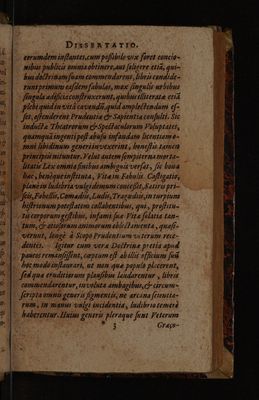 DISSERTATIO.
eorumdem instantes, cum possibile vix foret concio-
nibus publicis omnia obtinere, aut suggerere etiã, qui-
bus doctrinam suam commendarent, libris condide-
runt primum easdem fabulas, max singulis urbibus
singula ædificia construxerunt, quibus illiteratæ etiã
plebi quid in vitâ cavendũ, quid amplectendum es-
set, ostenderent Prudentiæ & Sapientiæ consulti. Sic
inducta Theatrorum & Spectaculorum Voluptates,
quamquã ingenti post abusu infandam licentiam o-
mni libidinum generi invexerint, honestis tamen
principiis nituntur. Velut autem sempiterna morta-
litatis Lex omnia finibus ambiguè versat, sic bona
hæc, benéque instituta, Vitæ in Fabulis Castigatio,
planè in ludibria vulgi demum concessit, Satiris pri-
scis, Fabellis, Comœdiis, Ludis, Tragœdiis, in turpium
histrionum potestatem collabentibus, qui, prostitu-
tis corporum gestibus, infami suæ Vitæ solatia tan-
tum, & otiosorum animorum oblectamenta, quæsi-
verunt, longè à Scopo Prudentum veterum rece-
dentes. Igitur cum vera Doctrinæ pretia apud
paucos remansissent, captum est ab illis officium suũ
hoc modo instaurari, ut non quæ populo placerent,
sed quæ eruditiorum plausibus laudarentur, libris
commendarentur, involuta ambagibus, & circum-
scripta omnis generis figmentis, ne arcana scientia-
rum, in manus vulgi incidentia, ludibrio temerè
haberentur. Huius generis pleraque sunt Veterum
3
Græco-